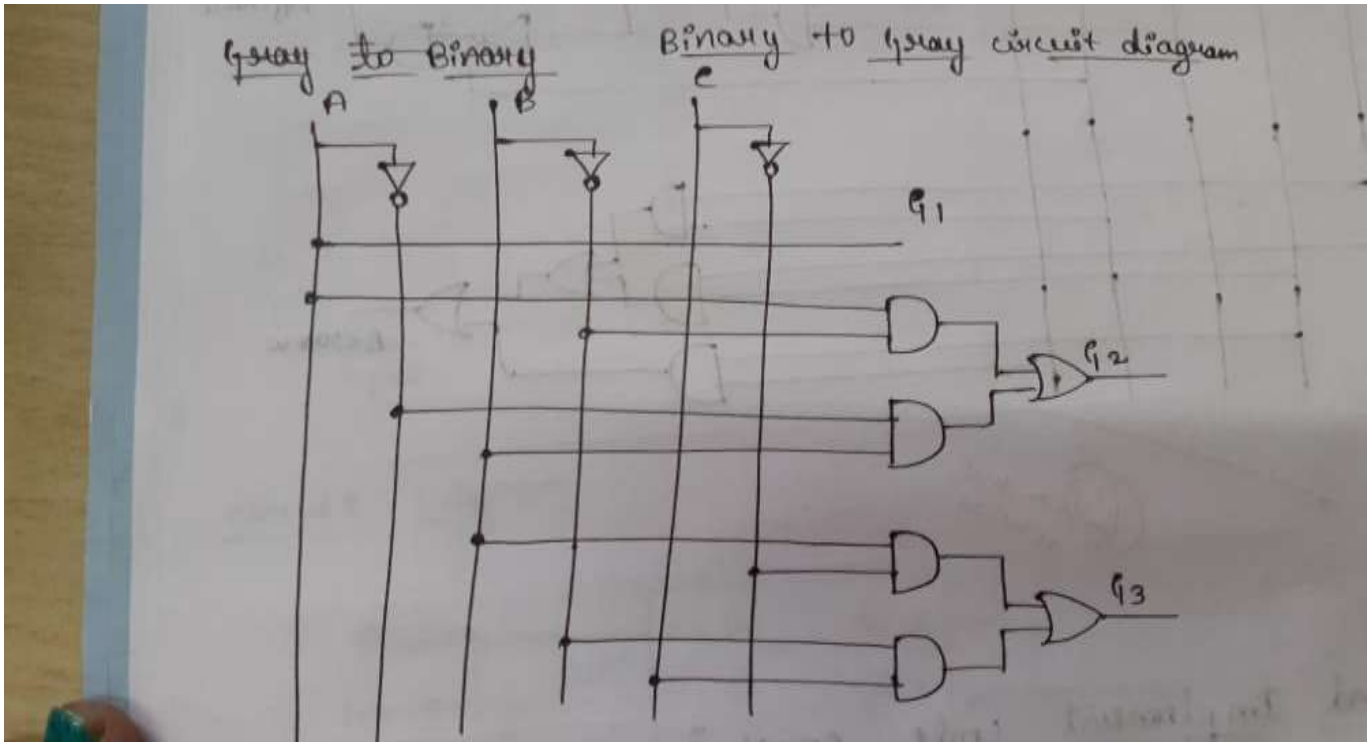 Gray to Binary
Binary to Gray circuit diagram
A
B
C
G1
G2
G3